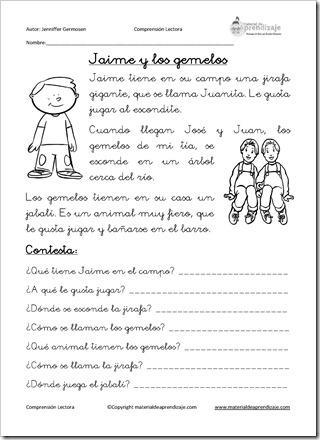 Autor: Jenniffer Germosen
Comprensión Lectora
material de
aprendizaje
Nombre:
Jaime y los gemelos
Jaime tiene en su campo una jirafa
gigante, que se llama Juanita. Le gusta
jugar al escondite.
Cuando llegan José y Juan, los
gemelos de mi tía, se
esconde en un árbol
cerca del río.
Los gemelos tienen en su casa un
jabalí. Es un animal muy fiero, que
le gusta jugar y bañarse en el barro.
Contesta:
¿Qué tiene Jaime en el campo?
¿A qué le gusta jugar?
¿Dónde se esconde la jirafa?
¿Cómo se llaman los gemelos?
¿Qué animal tienen los gemelos?
¿Cómo se llama la jirafa?
¿Dónde juega el jabalí?
Comprensión Lectora
©Copyright materialdeaprendizaje.com
www.materialdeaprendizaje.com